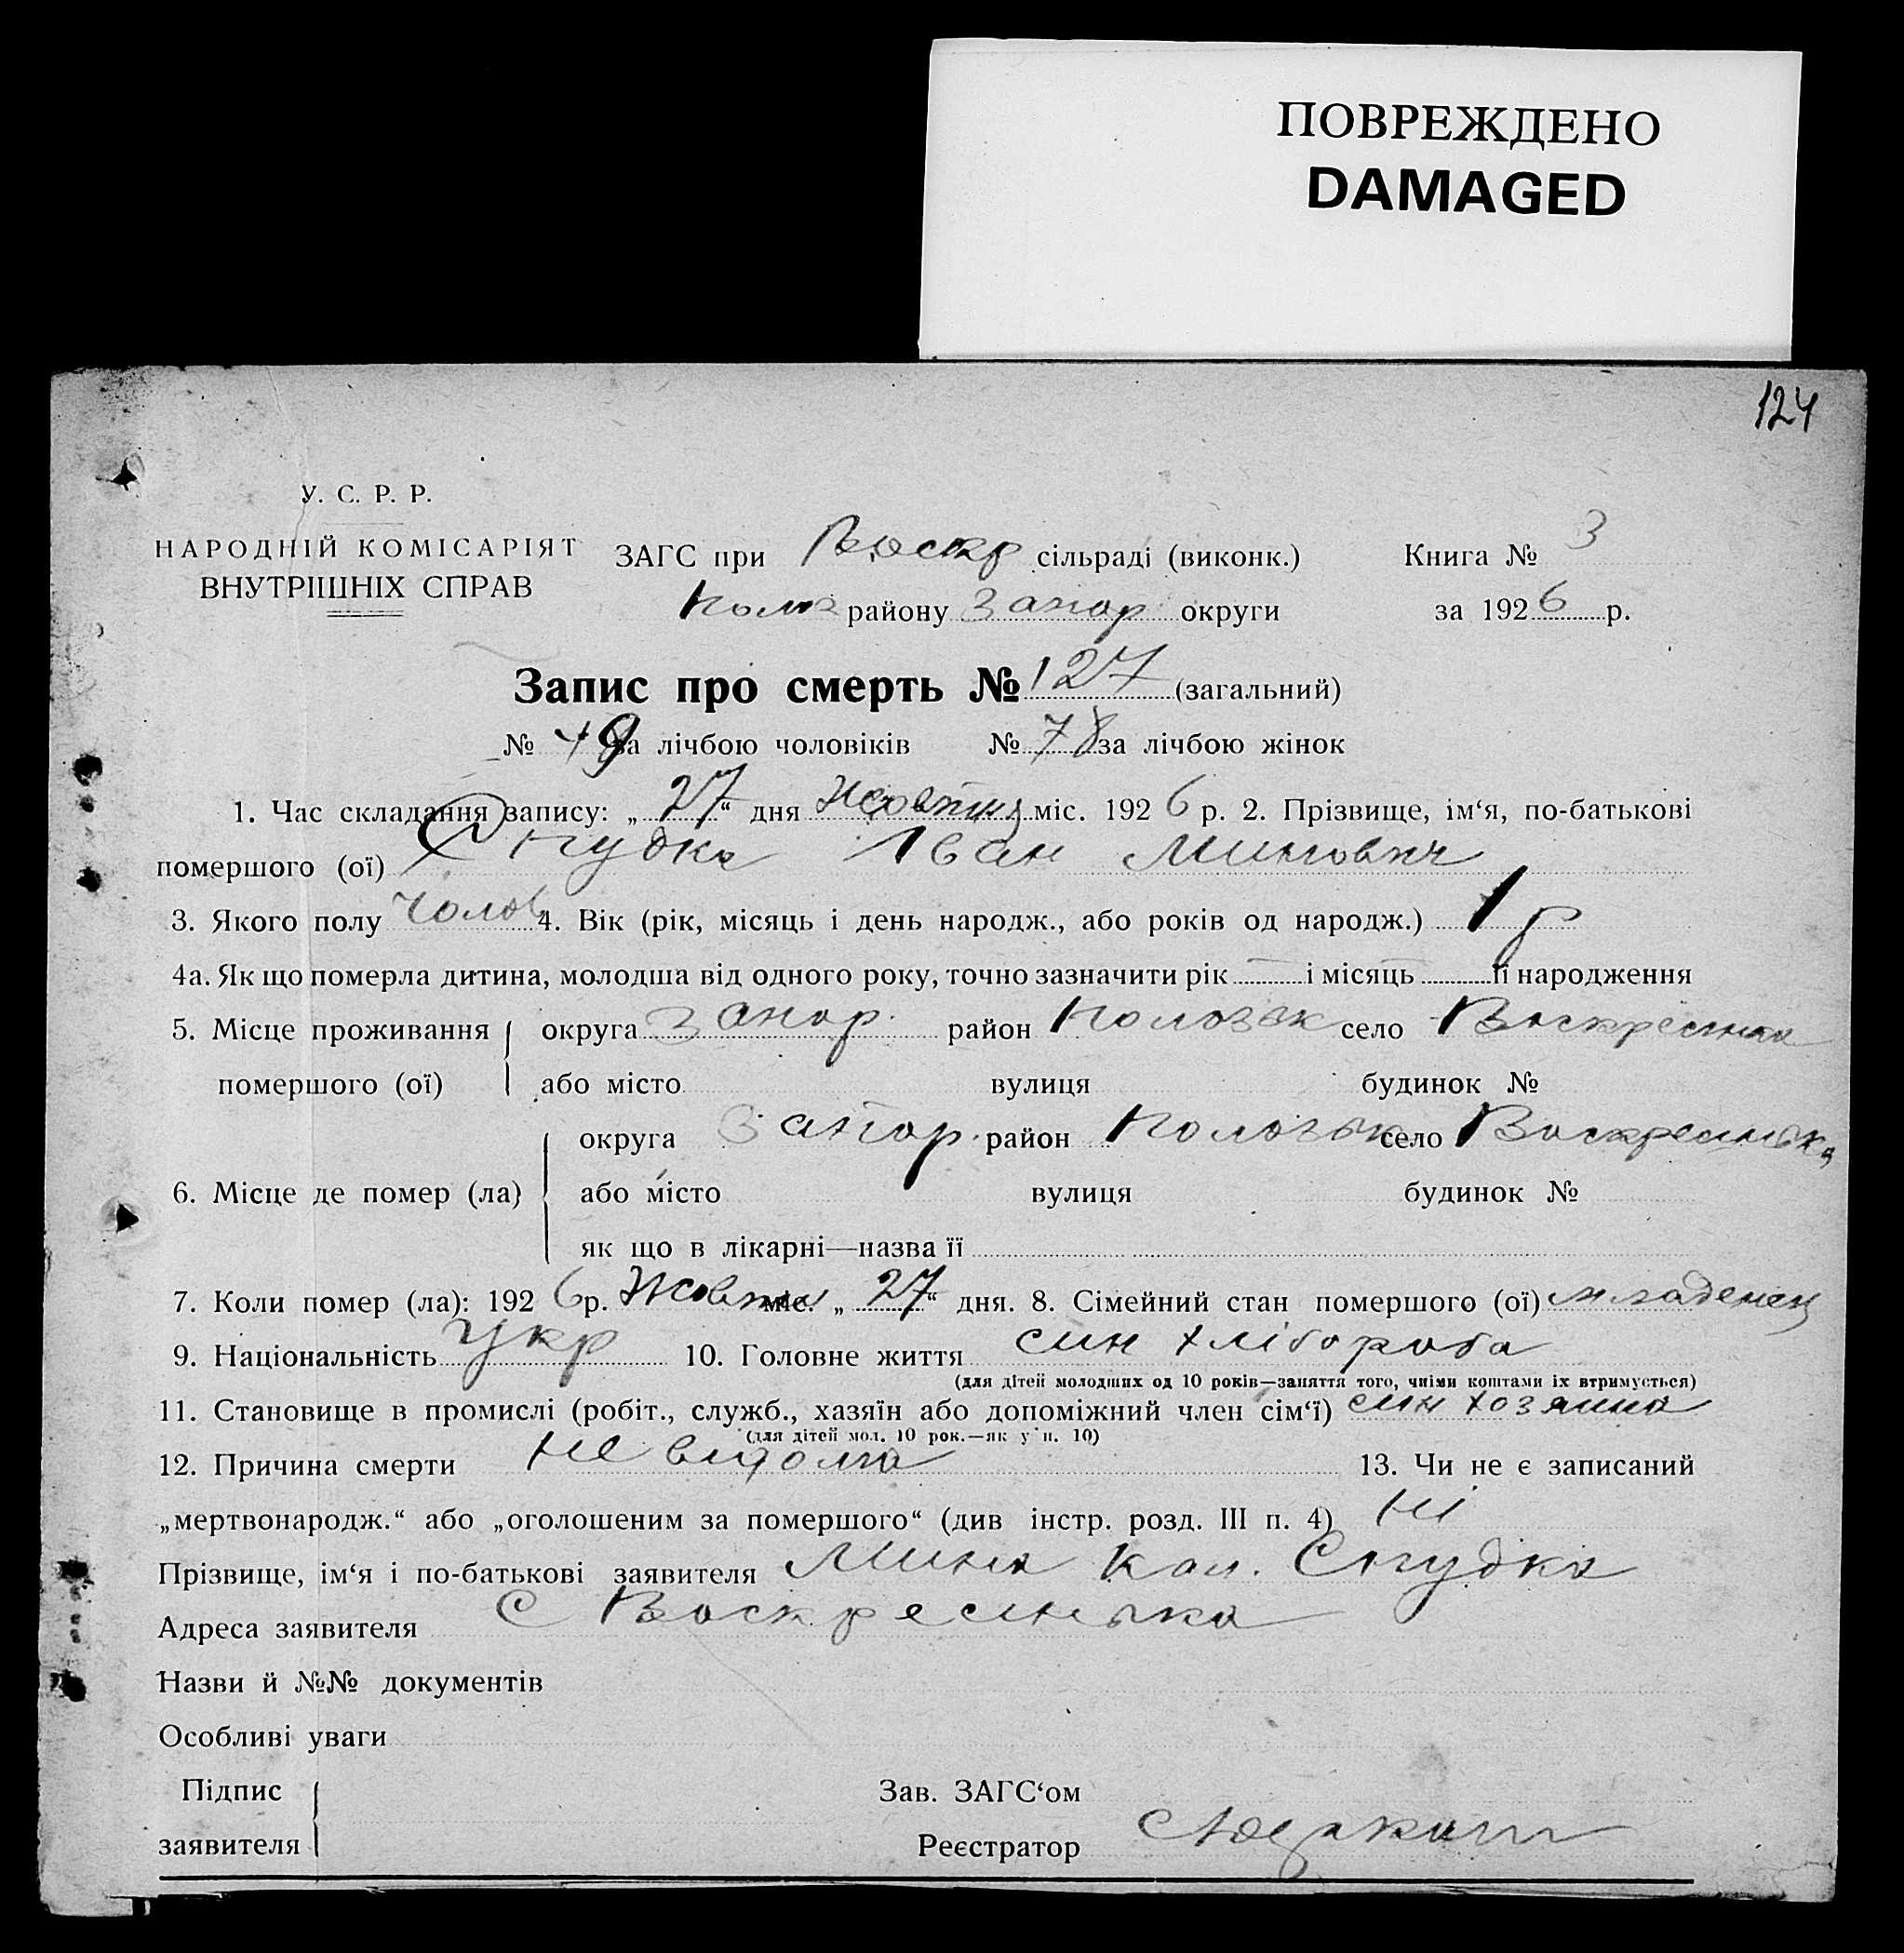 ПОВРЕЖДЕНО
DAMAGED
124
У. С. Р. Р.
НАРОДНІЙ КОМІСАРІЯТ
ВНУТРІШНІХ СПРАВ
ЗАГС при Воскр сільраді (виконк.) Книга № 3
району Запор округи за 1926 р.
Запис про смерть № 127 (загальний)
№ 49 за лічбою чоловіків № 78 за лічбою жінок
1. Час складання запису: „27“ дня Жовтня міс. 1926 р. 2. Прізвище, ім‘я, по-батькові
помершого (ої) Студка Іван Минович
3. Якого полу Чолов 4. Вік (рік, місяць і день народж., або років од народж.) 1 р
4а. Як що померла дитина, молодша від одного року, точно зазначити рік — і місяць — її народження
5. Місце проживання округа Запор. район Пологск село Воскресенка
помершого (ої) або місто вулиця будинок №
округа Запор. район Пологськ село Воскресенська
6. Місце де помер (ла) або місто вулиця будинок №
як що в лікарні—назва її
7. Коли помер (ла): 1926 р. Жовтня міс. „27“ дня. 8. Сімейний стан помершого (ої) младенец
9. Національність Укр 10. Головне життя син хлібороба
(для дітей молодших од 10 років—заняття того, чиїми коштами їх втримується)
11. Становище в промислі (робіт., служб., хазяїн або допоміжний член сім‘ї) син хозяина
(для дітей мол. 10 рок.—як у п. 10)
12. Причина смерти не відома 13. Чи не є записаний
„мертвонародж.“ або „оголошеним за помершого“ (див інстр. розд. III п. 4) ні
Прізвище, ім‘я і по-батькові заявителя Мина Кал. Студка
Адреса заявителя С Воскресенька
Назви й №№ документів
Особливі уваги
Підпис Зав. ЗАГС‘ом
заявителя Реєстратор